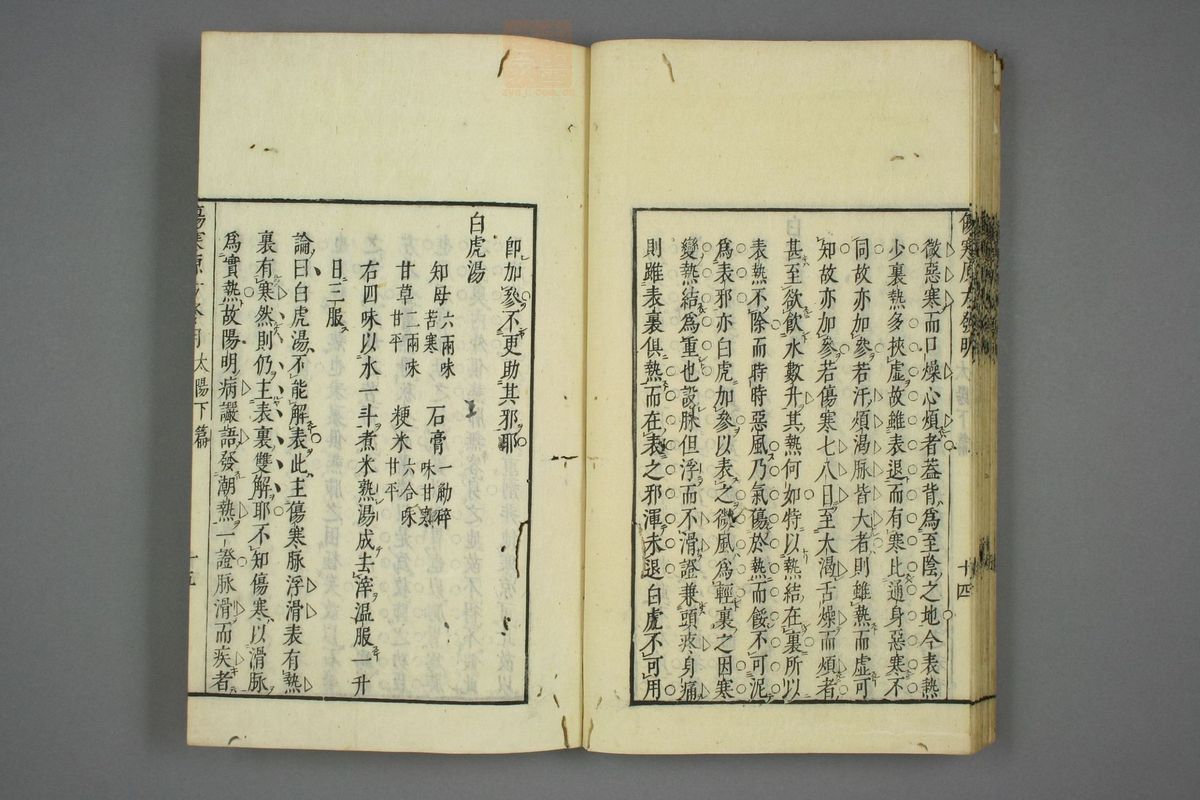 傷寒原方發明
十四
微惡寒而口燥心煩者葢背爲至陰之地今表熱
少裏熱多挾虛故雖表退而有寒比通身惡寒不
同故亦加參若汗煩渴脉皆大者則雖熱而虛可
知故亦加參若傷寒七八日至大渴舌燥而煩者
甚至欲飲水數升其熱何如特以熱結在裏所以
表熱不除而時時惡風乃氣傷於熱而餒不可泥
爲表邪亦白虎加參以表之微風爲輕裏之因寒
變熱結爲重也設脉但浮而不滑證兼頭疼身痛
則雖表裏俱熱而在表之邪渾未退白虎不可用
即加參不更助其邪耶
白虎湯
知母六兩味苦寒 石膏一觔碎味甘寒
甘草二兩味甘平 粳米六合味甘平
右四味以水一斗煮米熟湯成去滓溫服一升
日三服
論曰白虎湯不能解表此主傷寒脉浮滑表有熱
裏有寒然則仍主表裏雙解耶不知傷寒以滑脉
爲實熱故陽明病讝語發潮熱一證脉滑而疾者
太陽下篇